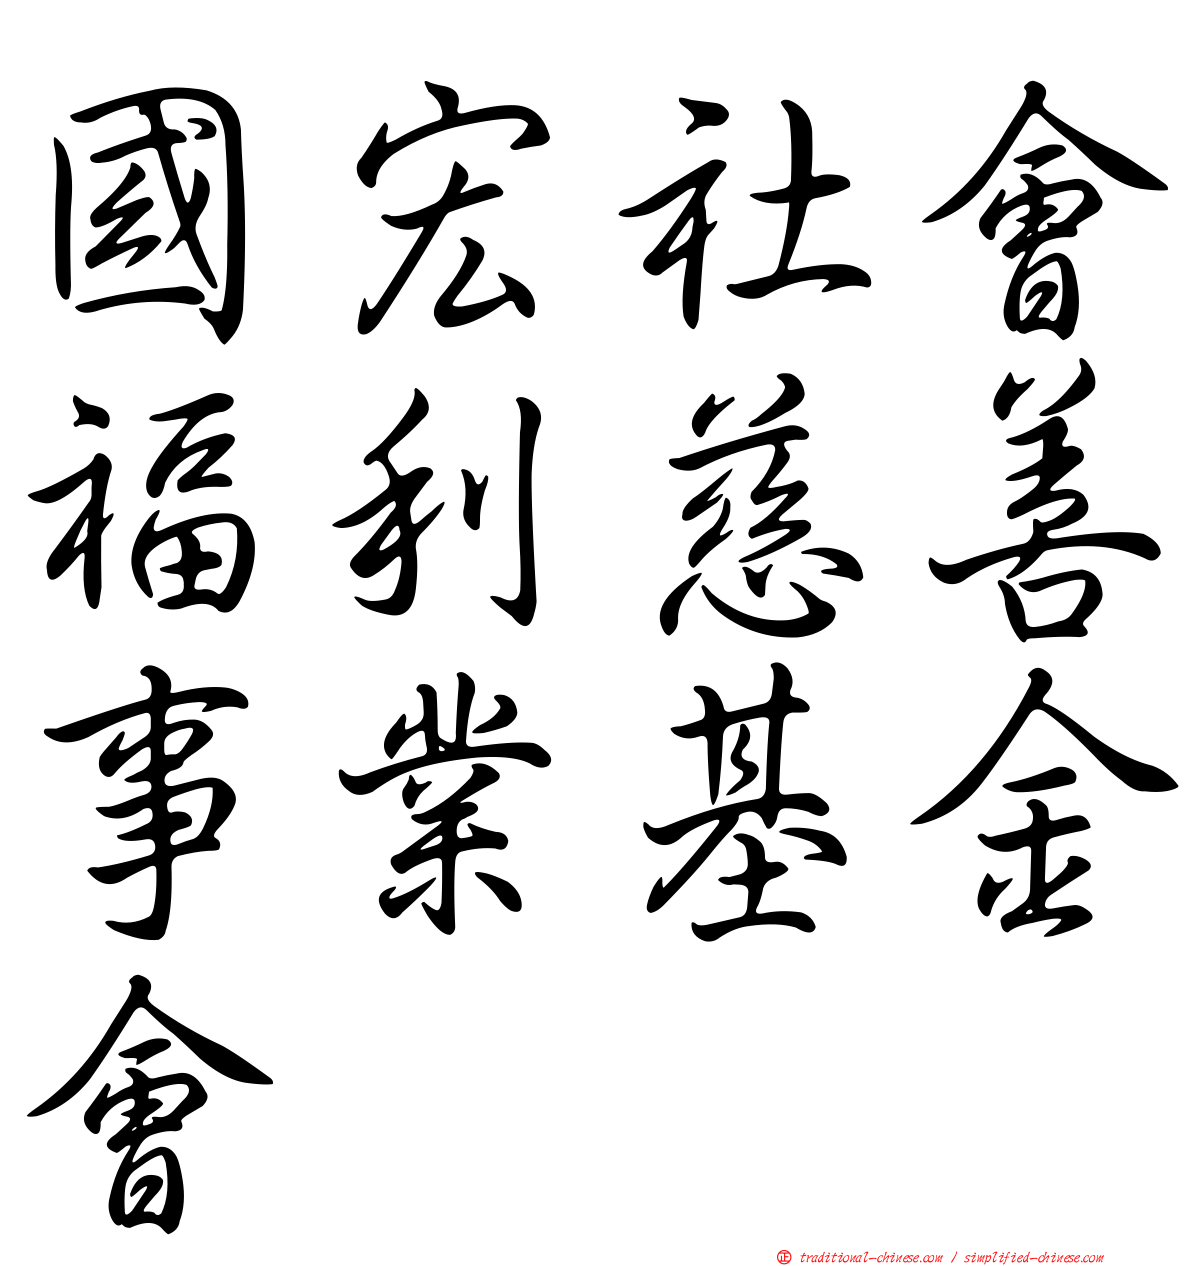 國宏社會
福利慈善
事業基金
會
正 traditional-chinese.com / simplified-chinese.com